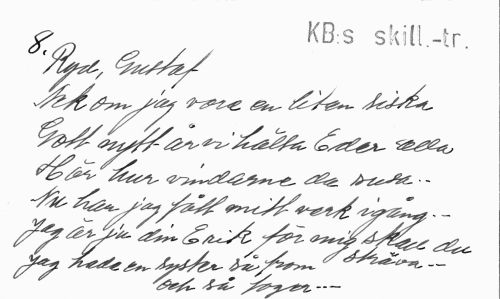 KB:s skill.-tr.
8.
Ryd, Gustaf
Ack om jag vore en liten siska
Gott nytt år vi hälsa Eder alla
Hör hur vindarne de susa --
Nu har jag fått mitt verk igång --
Jag är ju din Erik för mig skall du
sträva --
Jag hade en syster så from
och så fager ---